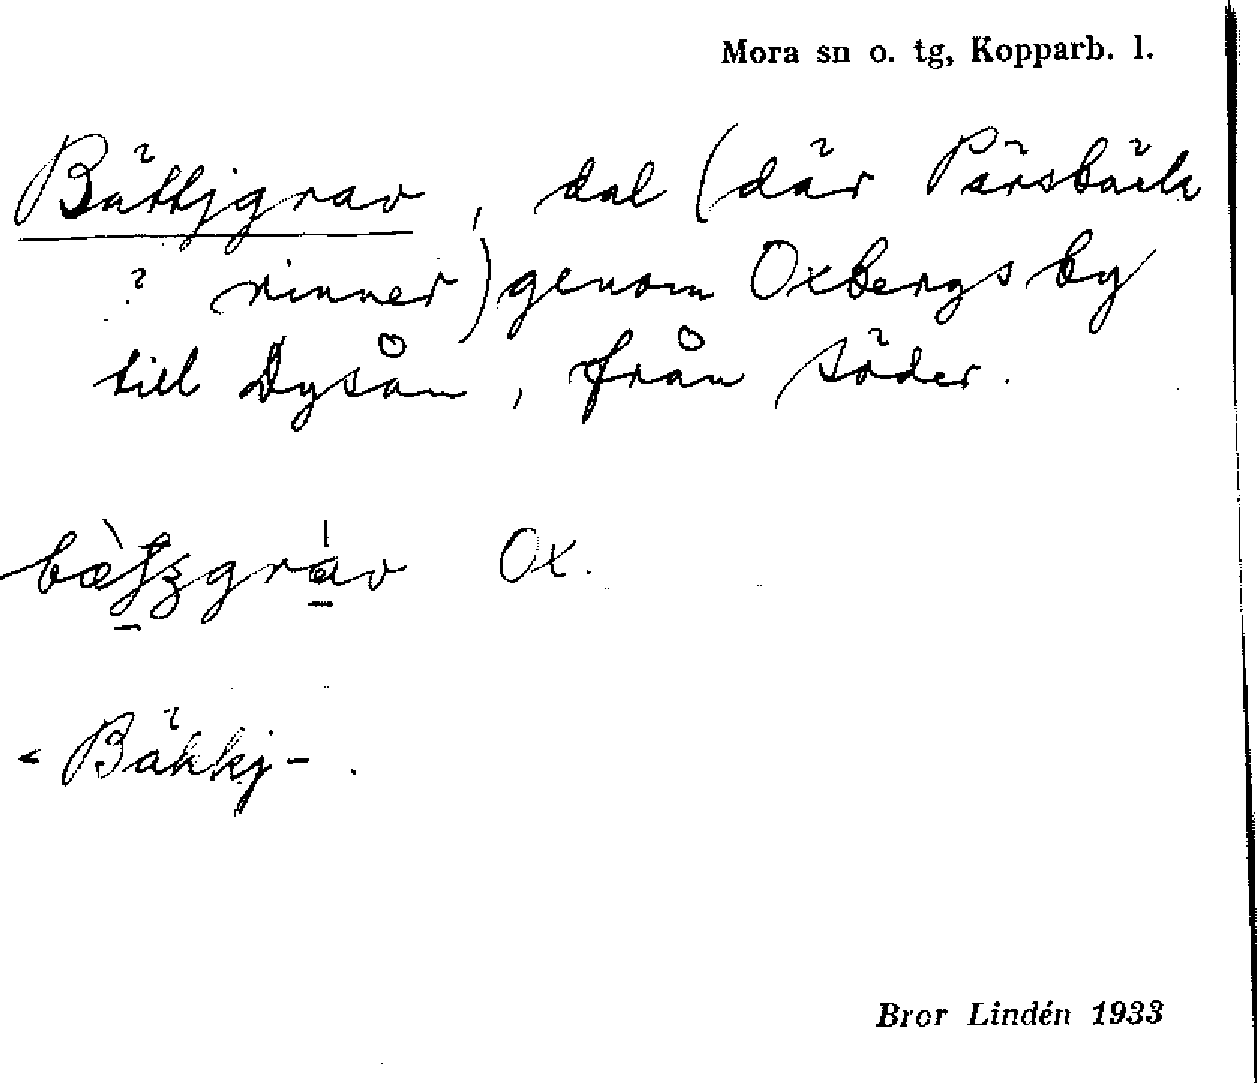 Mora sn o. tg, Kopparb. l.
Bättjgrav, dal (där Pärsbäck
? rinner) genom Oxbergs by
till Dysån, från söder.
Ox.
< Bäkkj-.
Bror Lindén 1933